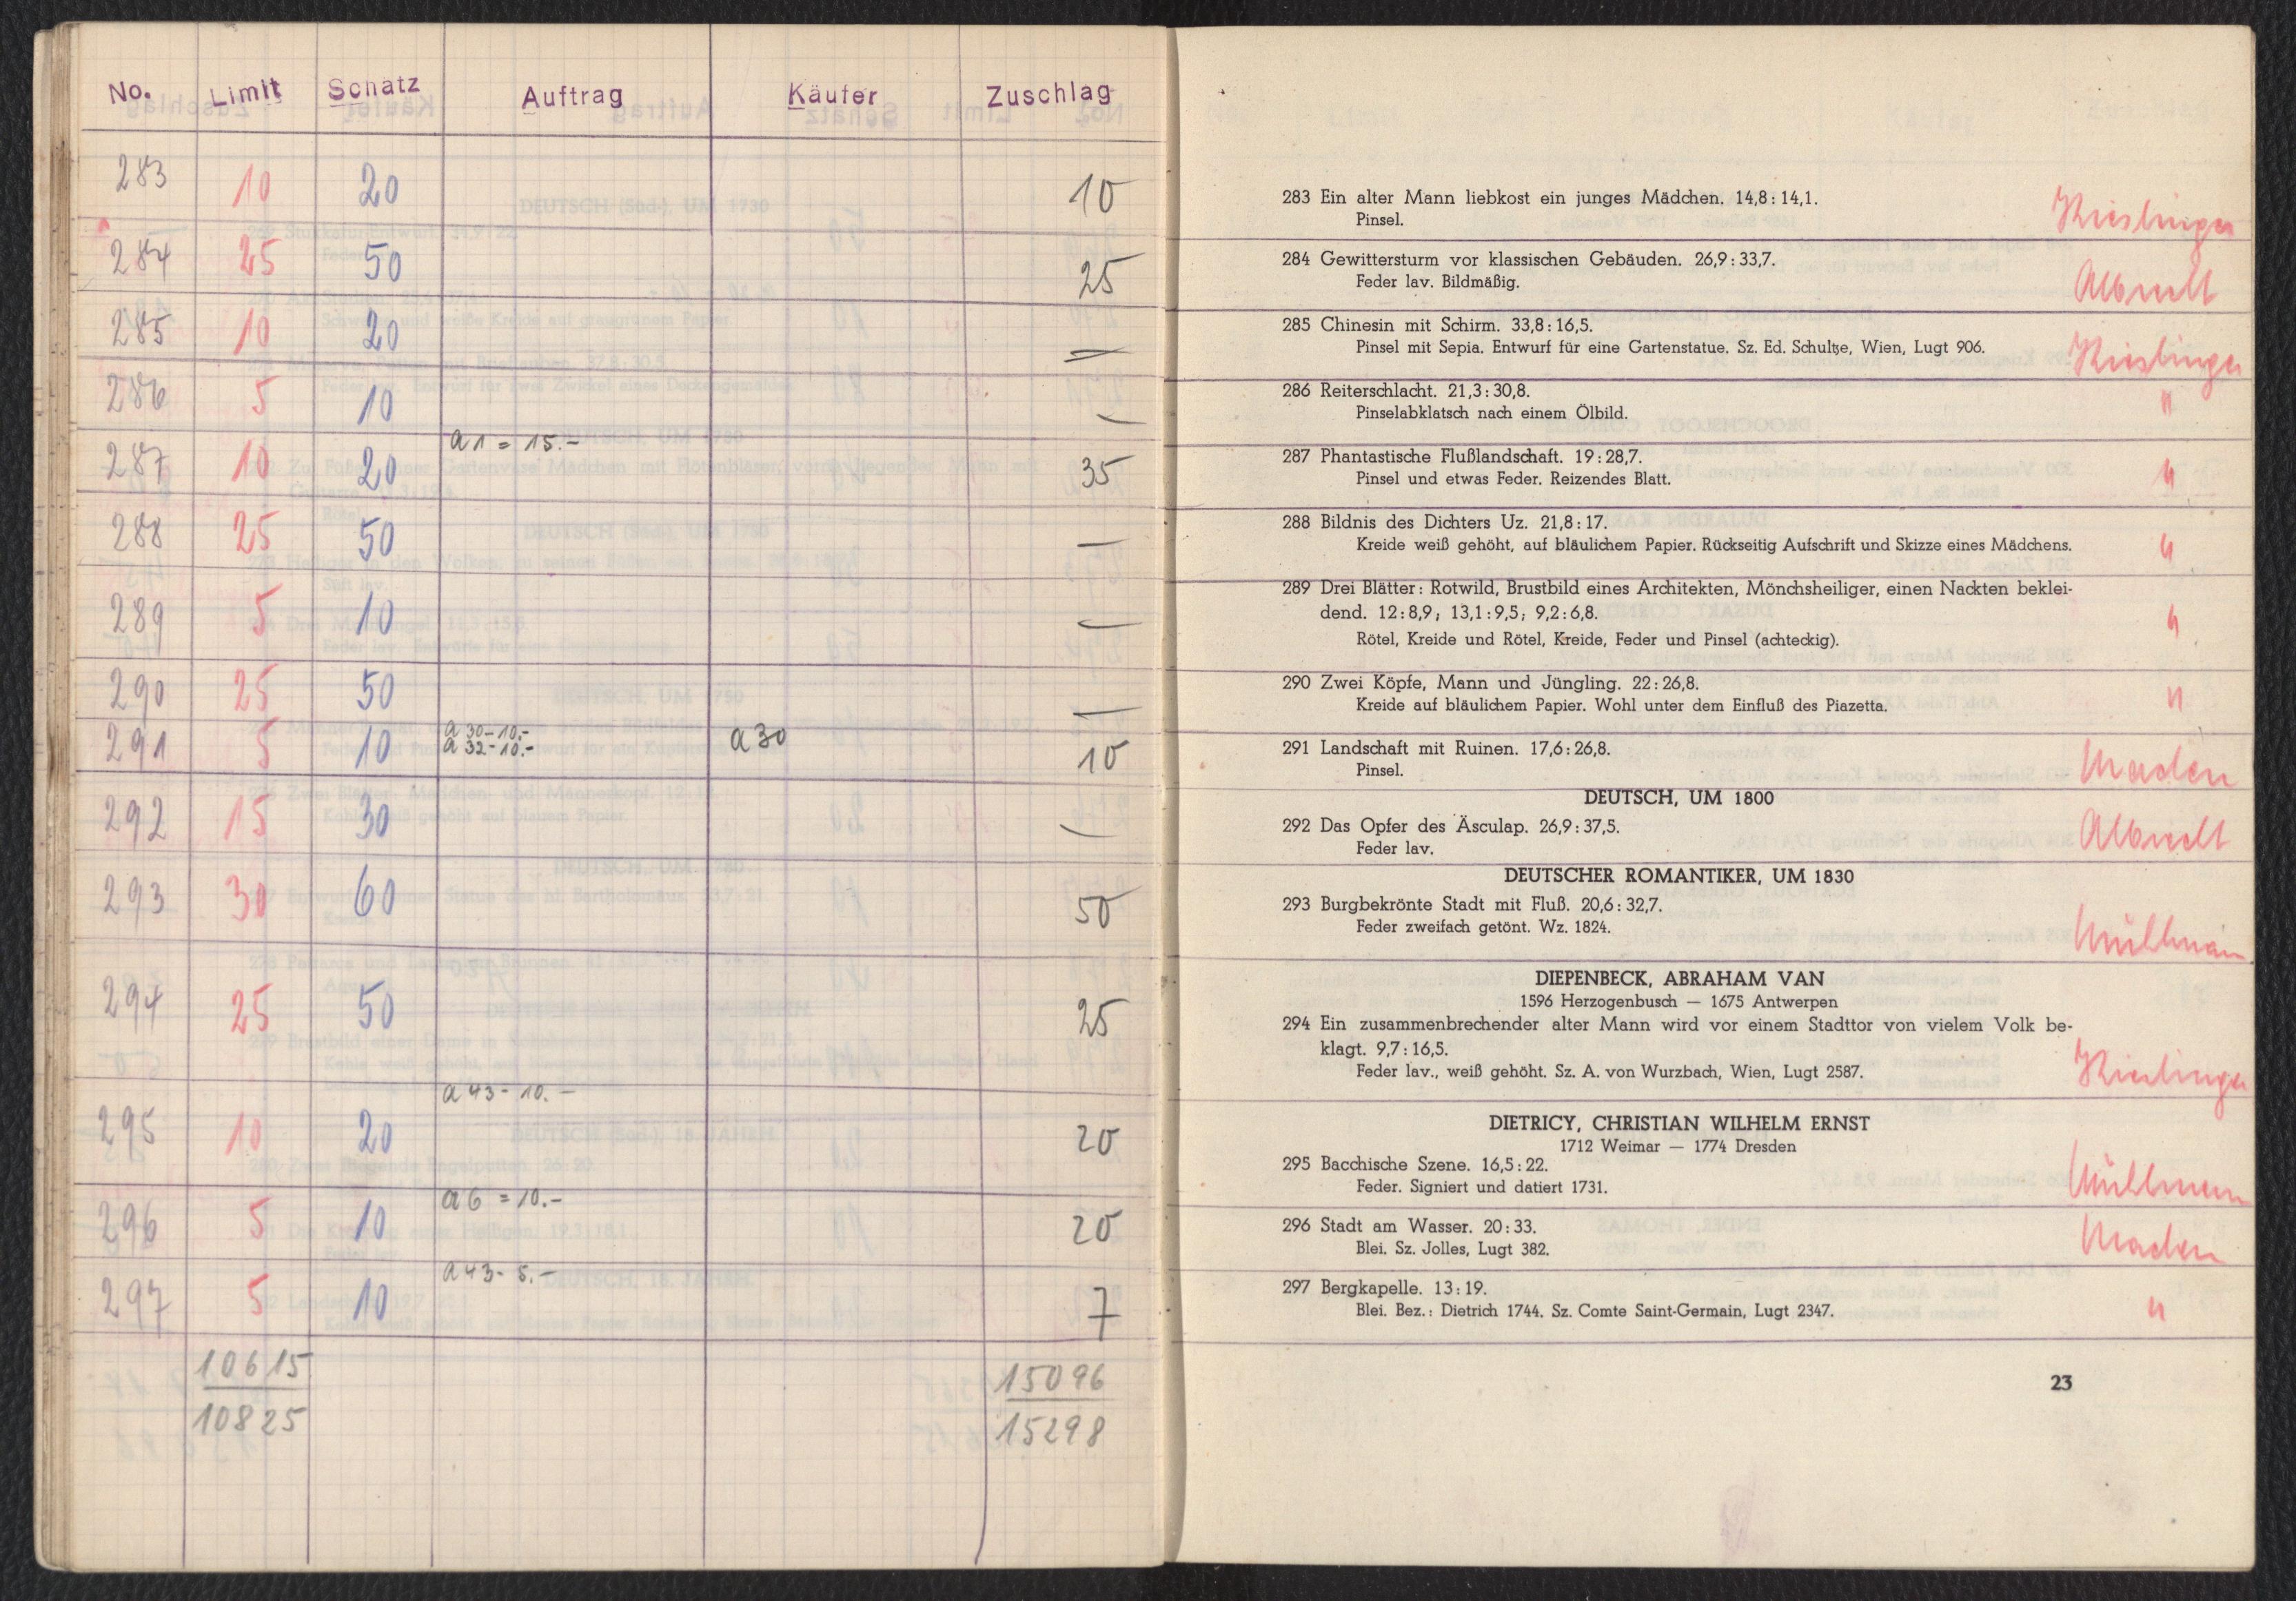 No. Limit Schatz Auftrag Käufer Zuschlag
283 10 20 10
284 25 50 25
285 10 20 —
286 5 10 —
287 10 20 a 1 = 15.- 35
288 25 50 —
289 5 10 —
290 25 50 —
291 5 10 a 30-10.- a 30 10
a 32-10.-
292 15 30 —
293 30 60 50
294 25 50 25
295 10 20 a 43- 10.— 20
296 5 10 a 6 = 10.- 20
297 5 10 a 43- 5.- 7
10615 15096
10825 15298
283 Ein alter Mann liebkost ein junges Mädchen. 14,8 : 14,1.
Pinsel.
284 Gewittersturm vor klassischen Gebäuden. 26,9 : 33,7.
Feder lav. Bildmäßig.
Albrecht
285 Chinesin mit Schirm. 33,8 : 16,5.
Pinsel mit Sepia. Entwurf für eine Gartenstatue. Sz. Ed. Schultze, Wien, Lugt 906.
286 Reiterschlacht. 21,3 : 30,8.
Pinselabklatsch nach einem Ölbild.
"
287 Phantastische Flußlandschaft. 19 : 28,7.
Pinsel und etwas Feder. Reizendes Blatt.
"
288 Bildnis des Dichters Uz. 21,8 : 17.
Kreide weiß gehöht, auf bläulichem Papier. Rückseitig Aufschrift und Skizze eines Mädchens.
"
289 Drei Blätter: Rotwild, Brustbild eines Architekten, Mönchsheiliger, einen Nackten beklei-
dend. 12 : 8,9; 13,1 : 9,5; 9,2 : 6,8.
Rötel, Kreide und Rötel, Kreide, Feder und Pinsel (achteckig).
"
290 Zwei Köpfe, Mann und Jüngling. 22 : 26,8.
Kreide auf bläulichem Papier. Wohl unter dem Einfluß des Piazetta.
"
291 Landschaft mit Ruinen. 17,6 : 26,8.
Pinsel.
DEUTSCH, UM 1800
292 Das Opfer des Äsculap. 26,9 : 37,5.
Feder lav.
Albrecht
DEUTSCHER ROMANTIKER, UM 1830
293 Burgbekrönte Stadt mit Fluß. 20,6 : 32,7.
Feder zweifach getönt. Wz. 1824.
DIEPENBECK, ABRAHAM VAN
1596 Herzogenbusch — 1675 Antwerpen
294 Ein zusammenbrechender alter Mann wird vor einem Stadttor von vielem Volk be-
klagt. 9,7 : 16,5.
Feder lav., weiß gehöht. Sz. A. von Wurzbach, Wien, Lugt 2587.
DIETRICY, CHRISTIAN WILHELM ERNST
1712 Weimar — 1774 Dresden
295 Bacchische Szene. 16,5 : 22.
Feder. Signiert und datiert 1731.
296 Stadt am Wasser. 20 : 33.
Blei. Sz. Jolles, Lugt 382.
297 Bergkapelle. 13 : 19.
Blei. Bez.: Dietrich 1744. Sz. Comte Saint-Germain, Lugt 2347.
"
23